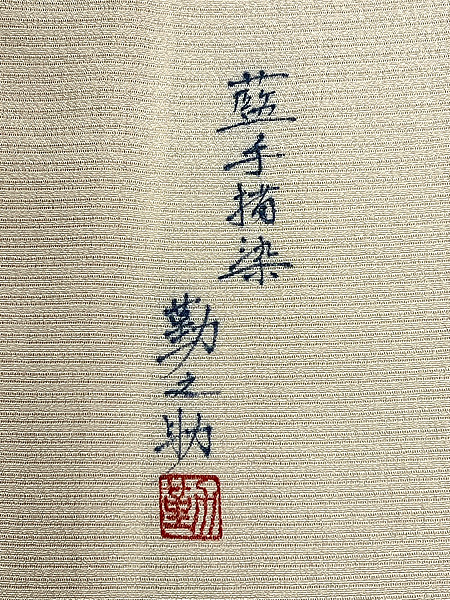 藍手描染
勤之助
勤